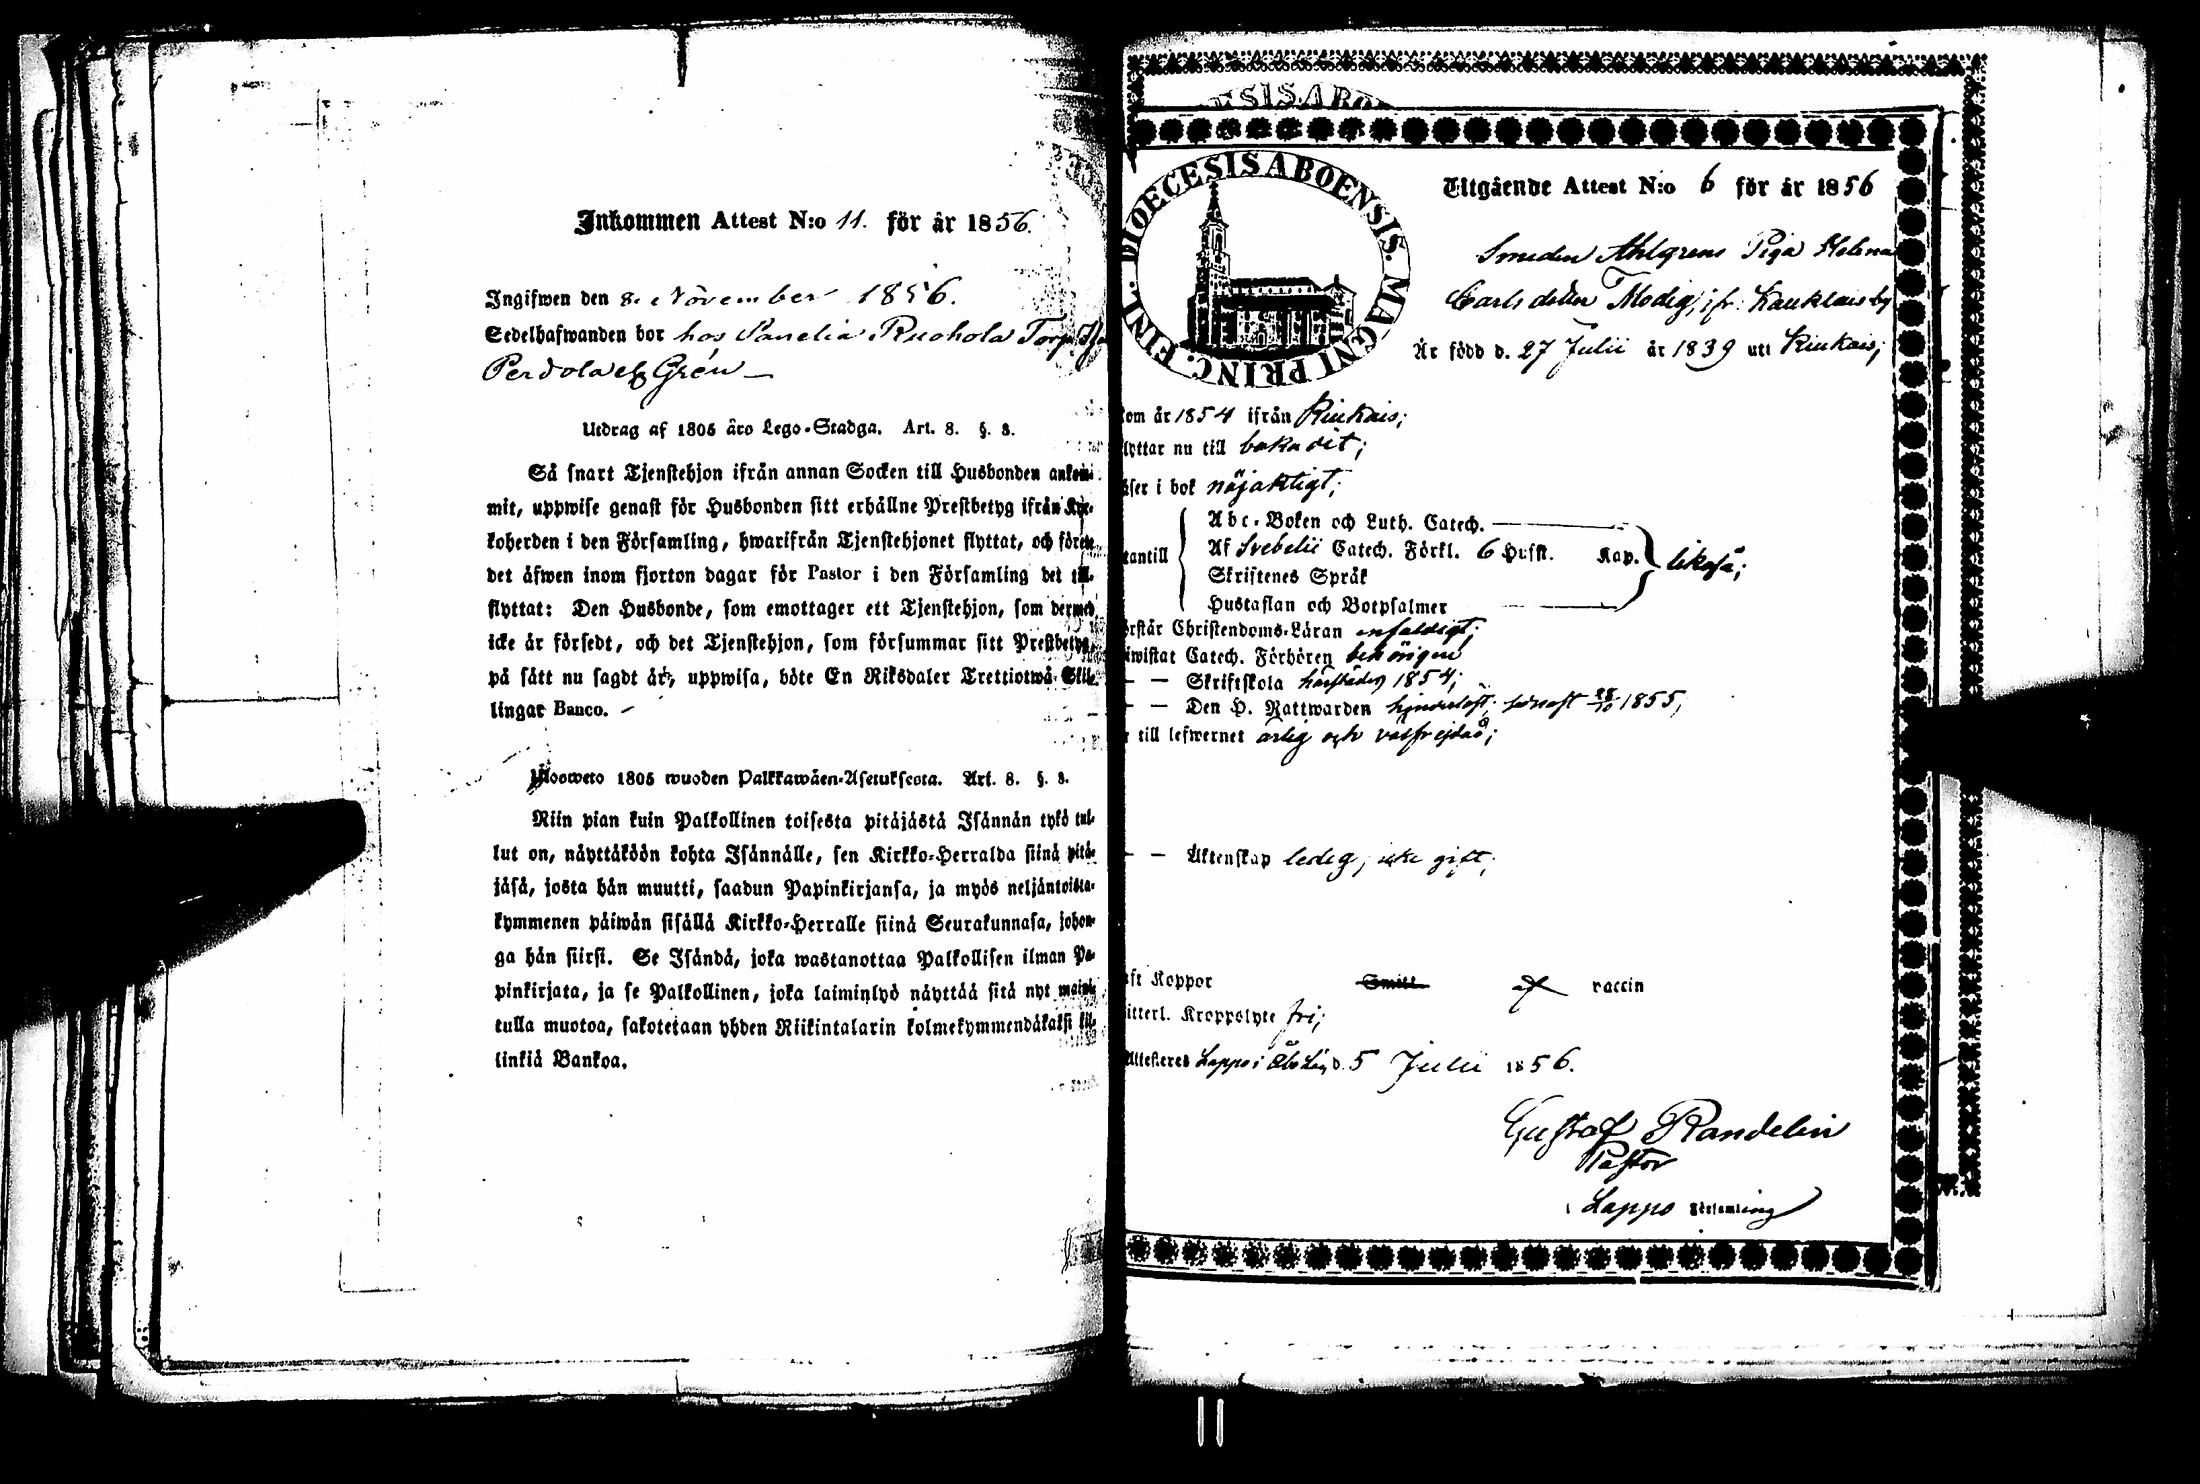 Inkommen Attest N:o 11. för år 1856.
Ingifwen den 8. November 1856.
Sedelhafwanden bor hos Panelia Ruohola Torp
Perdola Grén —
Utdrag af 1805 åro Lego-Stadga. Art. 8. §. 8.
Så snart Tjenstehjon ifrån annan Socken till Husbonden ankom-
mit, uppwise genast för Husbonden sitt erhållne Prestbetyg ifrån Kyr-
koherden i den Församling, hwarifrån Tjenstehjonet flyttat, och förete
det äfwen inom fjorton dagar för Pastor i den Församling det till-
flyttat: Den Husbonde, som emottager ett Tjenstehjon, som dermed
icke är försedt, och det Tjenstehjon, som försummar sitt Prestbetyg,
på sätt nu sagdt är, uppwisa, böte En Riksdaler Trettiotwå Skil-
lingar Banco. —
Uloosweto 1805 wuoden Palkkawäen-Asetuksesta. Art. 8. §. 8.
Niin pian kuin Palkollinen toisesta pitäjästä Isännän tykö tul-
lut on, näyttäköön kohta Isännälle, sen Kirkko-Herralda siinä pitä-
jäsä, josta hän muutti, saadun Papinkirjansa, ja myös neljäntoista-
kymmenen päiwän sisällä Kirkko-Herralle siinä Seurakunnasa, johon-
ga hän siirsi. Se Isändä, joka wastanottaa Palkollisen ilman Pa-
pinkirjata, ja se Palkollinen, joka laiminlyö näyttää sitä nyt maini-
tulla muotoa, sakotetaan yhden Riikintalarin kolmekymmendäkaksi kil-
linkiä Bankoa.
DIOECESIS ABOENSIS. MAGNI PRINC. FINL.
Utgående Attest N:o 6 för år 1856
Smeden Ahlgrens Piga Helena
Carlsdotter Modig, ifr. Kauklais by
Är född d. 27 Julii år 1839 uti Kiukais;
kom år 1854 ifrån Kiukais;
flyttar nu till baka dit;
läser i bok nöjaktigt;
utantill
Abc-Boken och Luth. Catech.
Af Svebelii Catech. Förkl. 6 Hufst. Kap.
Skriftenes Språk
Hustaflan och Botpsalmer
likaså;
förstår Christendoms-Läran enfaldigt;
biwistat Catech. Förhören behörigen
— — Skriftskola härstädes 1854;
— — Den H. Nattwarden hinderlöst, senast 28/10 1855;
till lefwernet ärlig och välfrejdad;
— — Äktenskap ledig, icke gift;
haft Koppor Smitt. af vaccin
witterl. Kroppslyte fri;
Attesteres Lappo i Åbo Län d. 5 Julii 1856.
Gustaf Randelin
Pastor
i Lappo Församling